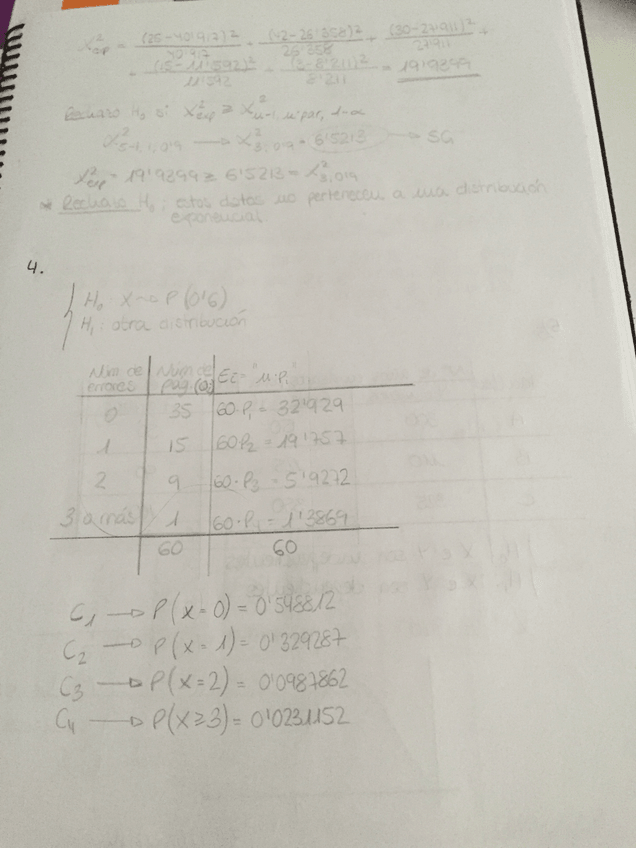 X²exp = (25-40'917)²/40'917 + (42-26'358)²/26'358 + (30-27'911)²/27'911 +
+ (15-11'592)²/11'592 + (3-8'211)²/8'211 = 19'9899
Rechazo H₀ si X²exp ≥ X²n-1, n'par, 1-α
X²5-1,1,0'9 → X²3,0'9 = 6'5213 → SG
X²exp = 19'9899 ≥ 6'5213 = X²3,0'9
* Rechazo H₀; estos datos no pertenecen a una distribución
exponencial
4.
H₀ X→P(0'6)
H₁: otra distribución
Num de errores | Num de pág. (Oi) | Ei = "n·Pi"
0 | 35 | 60·P₁ = 32'929
1 | 15 | 60·P₂ = 19'757
2 | 9 | 60·P₃ = 5'9272
3 o más | 1 | 60·P₄ = 1'3869
60 | 60
C₁ → P(x=0) = 0'548812
C₂ → P(x=1) = 0'329287
C₃ → P(x=2) = 0'0987862
C₄ → P(x≥3) = 0'0231152